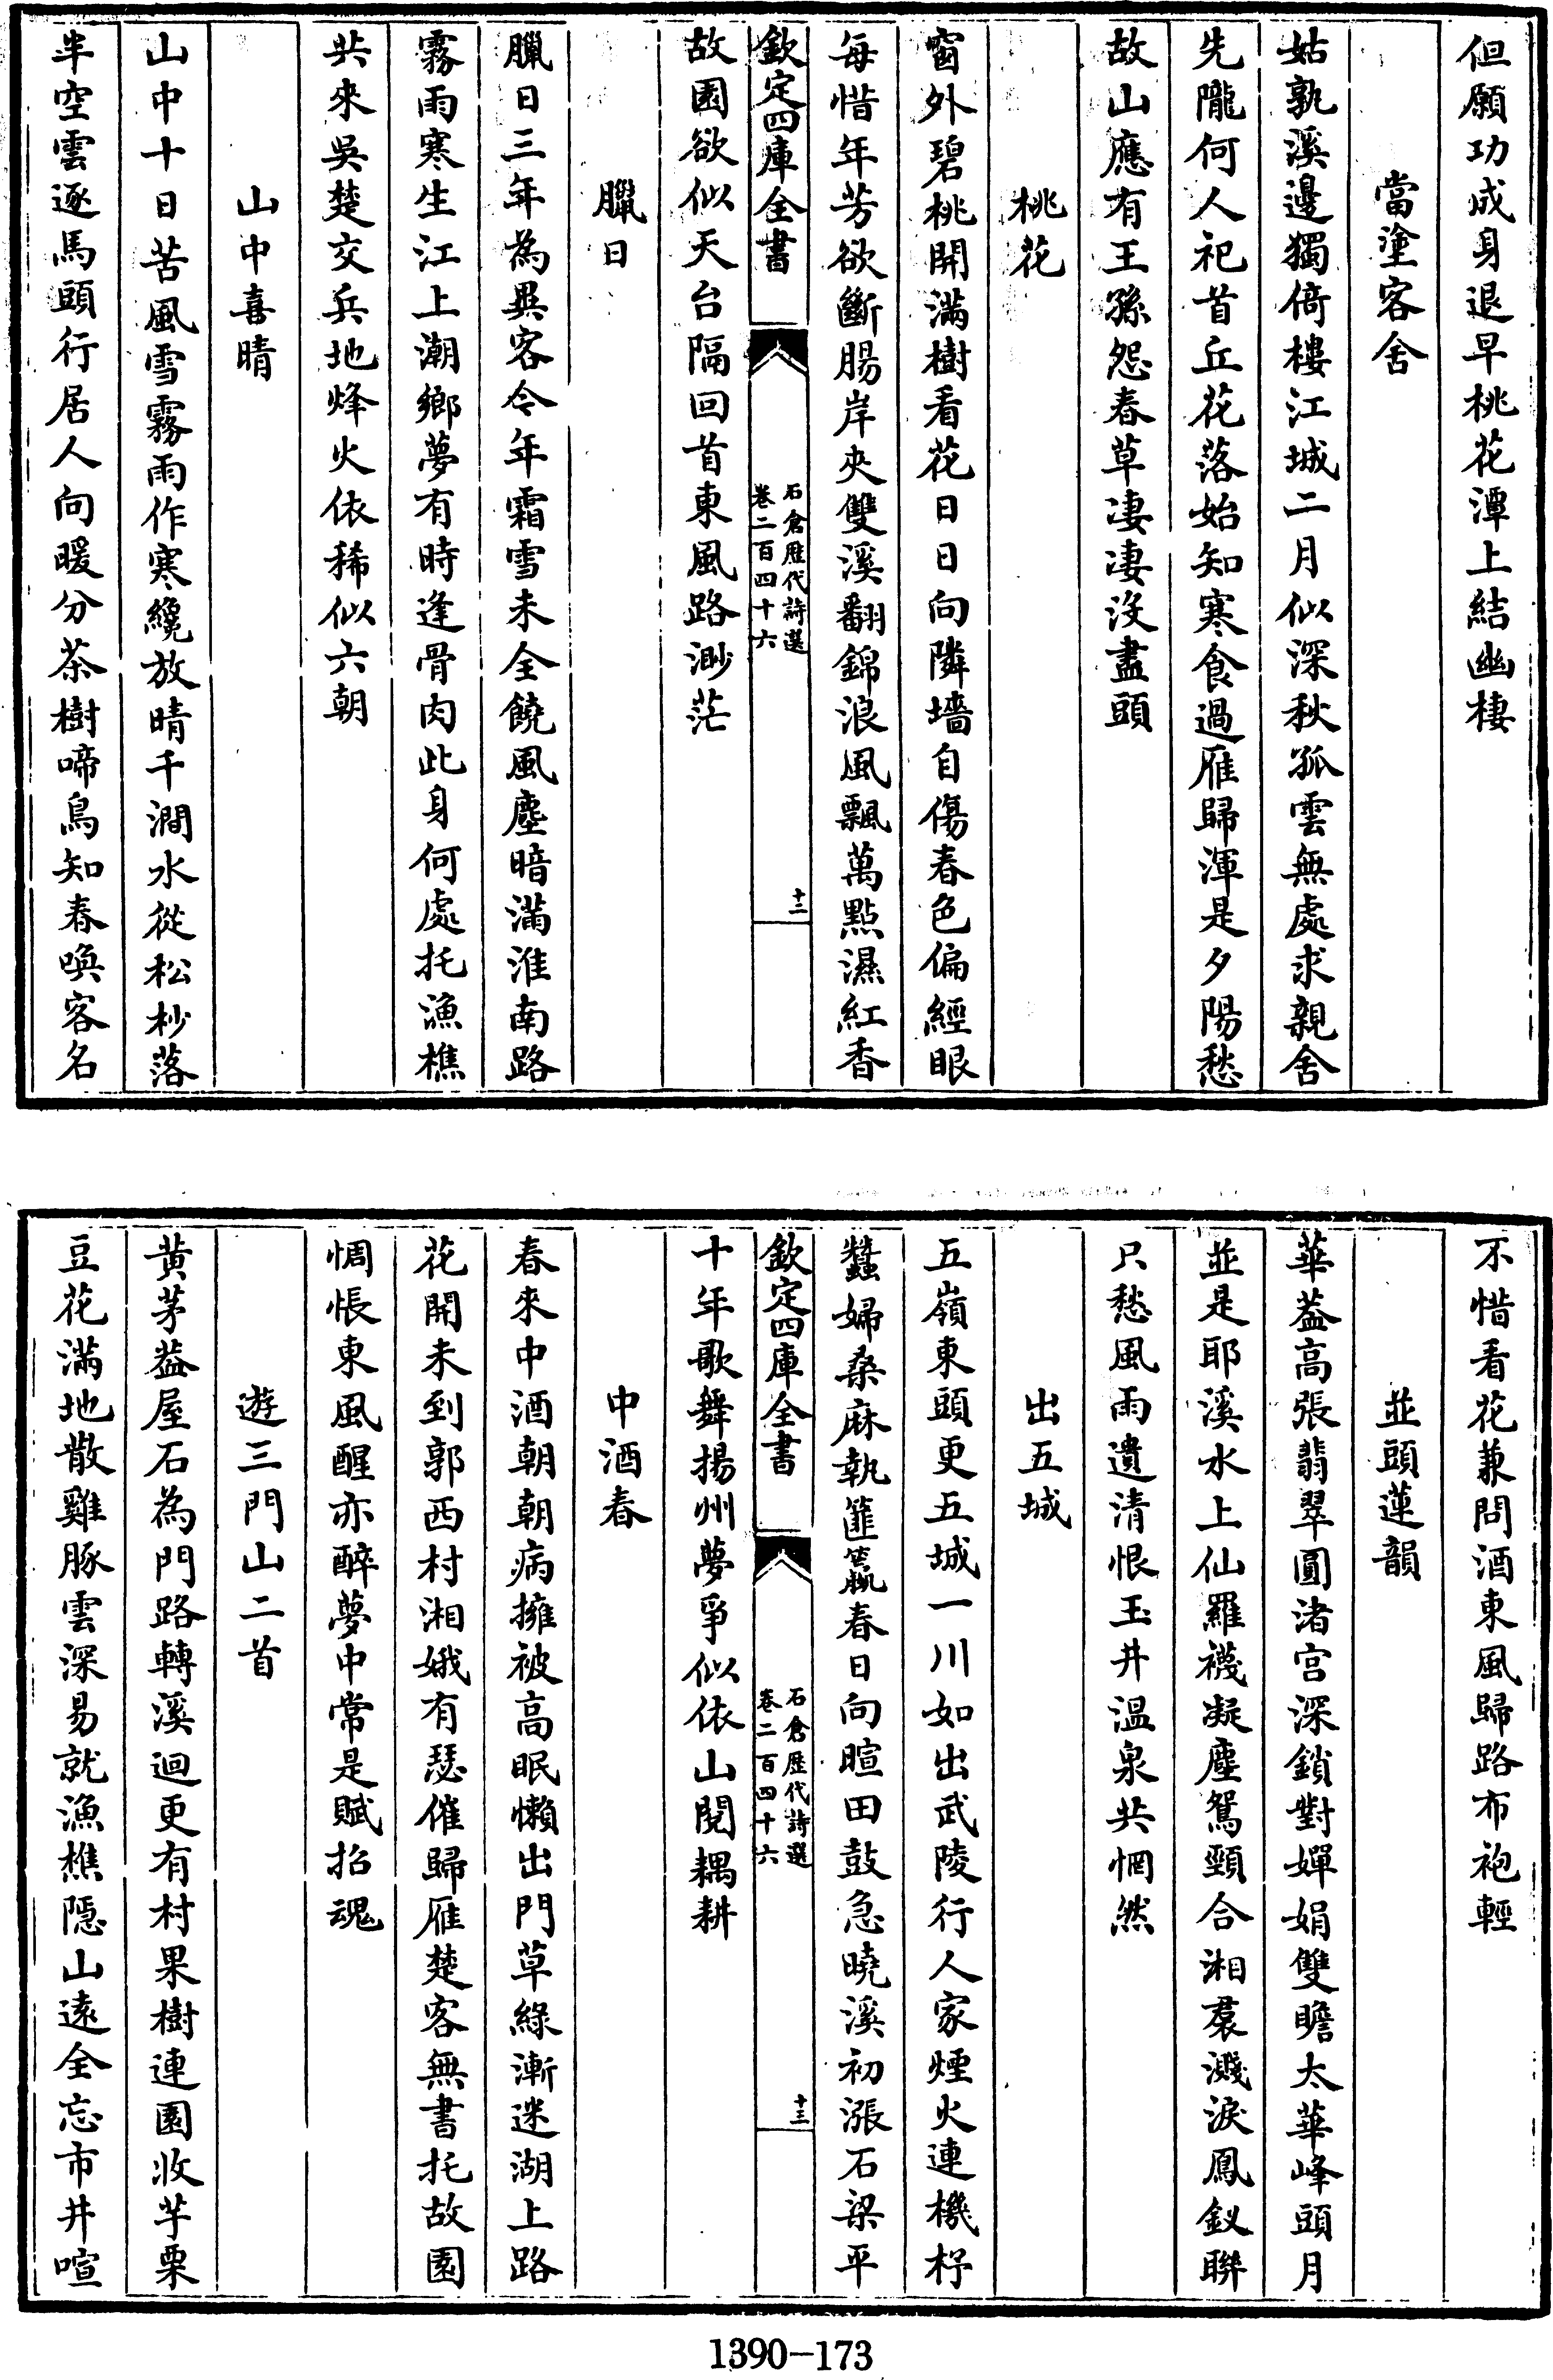 但願功成身退早桃花潭上結幽棲
當塗客舍
姑孰溪邊獨倚樓江城二月似深秋孤雲無處求親舍
先隴何人祀首丘花落始知寒食過雁歸渾是夕陽愁
故山應有王孫怨春草凄凄沒盡頭
桃花
窗外碧桃開滿樹看花日日向隣墻自傷春色偏經眼
每惜年芳欲斷腸岸夾雙溪翻錦浪風飄萬點濕紅香
欽定四庫全書
石倉歷代詩選
卷二百四十六
十二
故園欲似天台隔回首東風路渺茫
臘日
臘日三年為異客今年霜雪未全饒風塵暗滿淮南路
霧雨寒生江上潮鄉夢有時逢骨肉此身何處托漁樵
共來吳楚交兵地烽火依稀似六朝
山中喜晴
山中十日苦風雪霧雨作寒纔放晴千澗水從松杪落
半空雲逐馬頭行居人向暖分茶樹啼鳥知春喚客名
不惜看花兼問酒東風歸路布袍輕
並頭蓮韻
華葢高張翡翠圓渚宮深鎖對嬋娟雙瞻太華峰頭月
並是耶溪水上仙羅襪凝塵鴛頸合湘裠濺淚鳳釵聯
只愁風雨遺清恨玉井温泉共惘然
出五城
五嶺東頭更五城一川如出武陵行人家煙火連機杼
蠶婦桑麻執篚籯春日向暄田鼓急曉溪初漲石梁平
欽定四庫全書
石倉歷代詩選
卷二百四十六
十三
十年歌舞揚州夢爭似依山閱耦耕
中酒春
春來中酒朝朝病擁被高眠懶出門草綠漸迷湖上路
花開未到郭西村湘娥有瑟催歸雁楚客無書托故園
惆悵東風醒亦醉夢中常是賦招魂
遊三門山二首
黃茅葢屋石為門路轉溪迴更有村果樹連園收芋栗
豆花滿地散雞豚雲深易就漁樵隱山遠全忘市井喧
1390-173